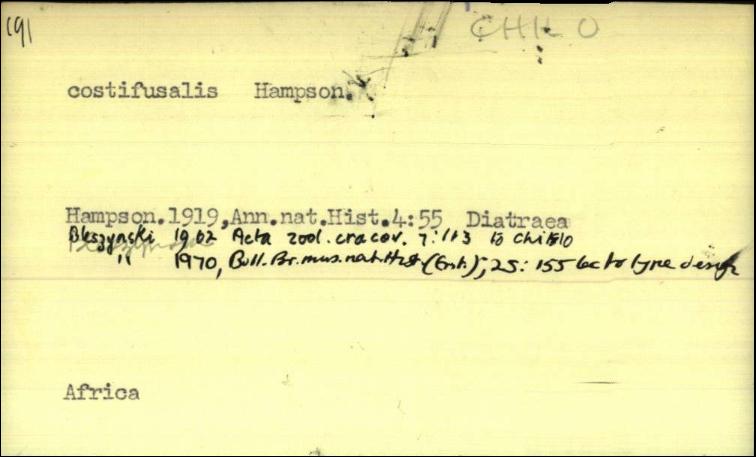 191
CHILO
costifusalis Hampson.
Hampson.1919,Ann.nat.Hist.4:55 Diatraea
Bleszyncki 1962 Acta zool. cracov. 7:113 to Chilo
" 1970, Bull. Br. mus. nat. Hist. (Ent.), 25: 155 lectotype desig
Africa